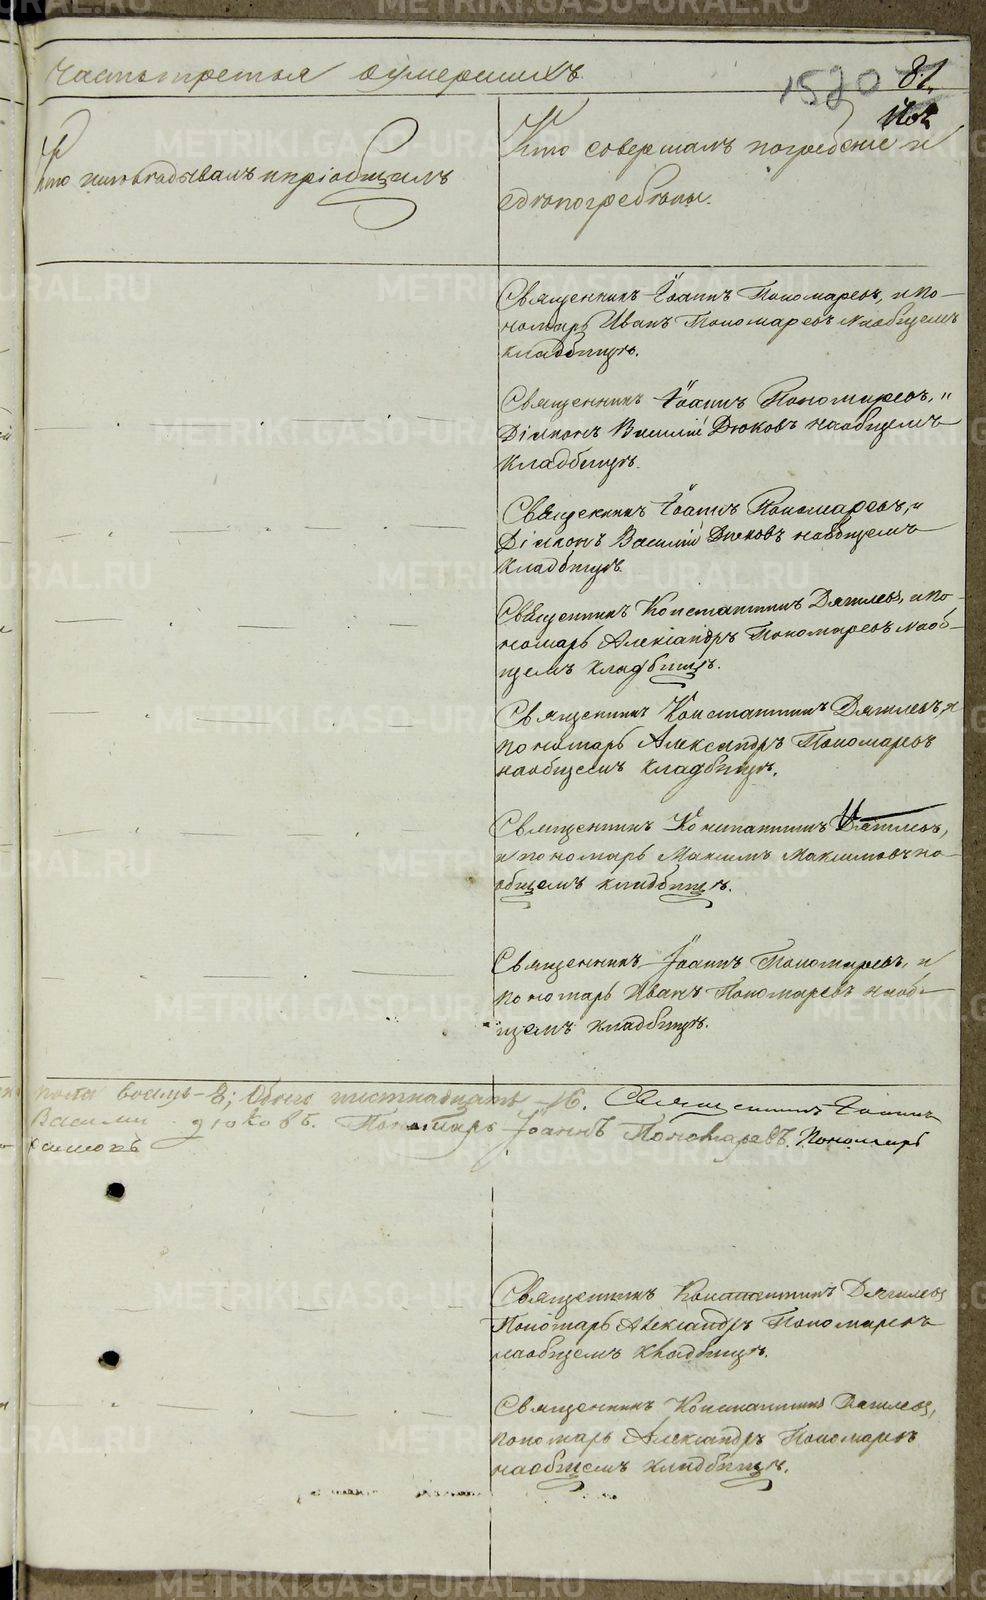 Часть третья оумершихъ
1520
81.
Кто исповѣдывалъ и пріобщилъ
Кто совершалъ погребеніе и
гдѣ погребены.
Священникъ Іоаннъ Пономаревъ, и по-
номарь Иванъ Пономаревъ на общемъ
кладбищѣ.
Священникъ Іоаннъ Пономаревъ, и
Діаконъ Василій Дюковъ на общемъ
кладбищѣ.
Священникъ Іоаннъ Пономаревъ, и
Діаконъ Василій Дюковъ на общемъ
кладбищѣ.
Священникъ Константинъ Дягилевъ, и по-
номарь Александръ Пономаревъ на об-
щемъ кладбищѣ.
Священникъ Константинъ Дягилевъ, и
пономарь Александръ Пономаревъ
на общемъ кладбищѣ.
Священникъ Константинъ Дягилевъ,
и пономарь Максимъ на
общемъ кладбищѣ.
Священникъ Іоаннъ Пономаревъ, и
пономарь Иванъ Пономаревъ на об-
щемъ кладбищѣ.
пола восемь - 8; Обоего шестнадцать - 16. Священникъ Іоаннъ
Василій Дюковъ. Пономарь Іоаннъ Пономаревъ. Пономарь
Священникъ Константинъ Дягилевъ
Пономарь Александръ Пономаревъ
на общемъ кладбищѣ.
Священникъ Константинъ Дягилевъ,
пономарь Александръ Пономаревъ
на общемъ кладбищѣ.
METRIKI.GASO-URAL.RU